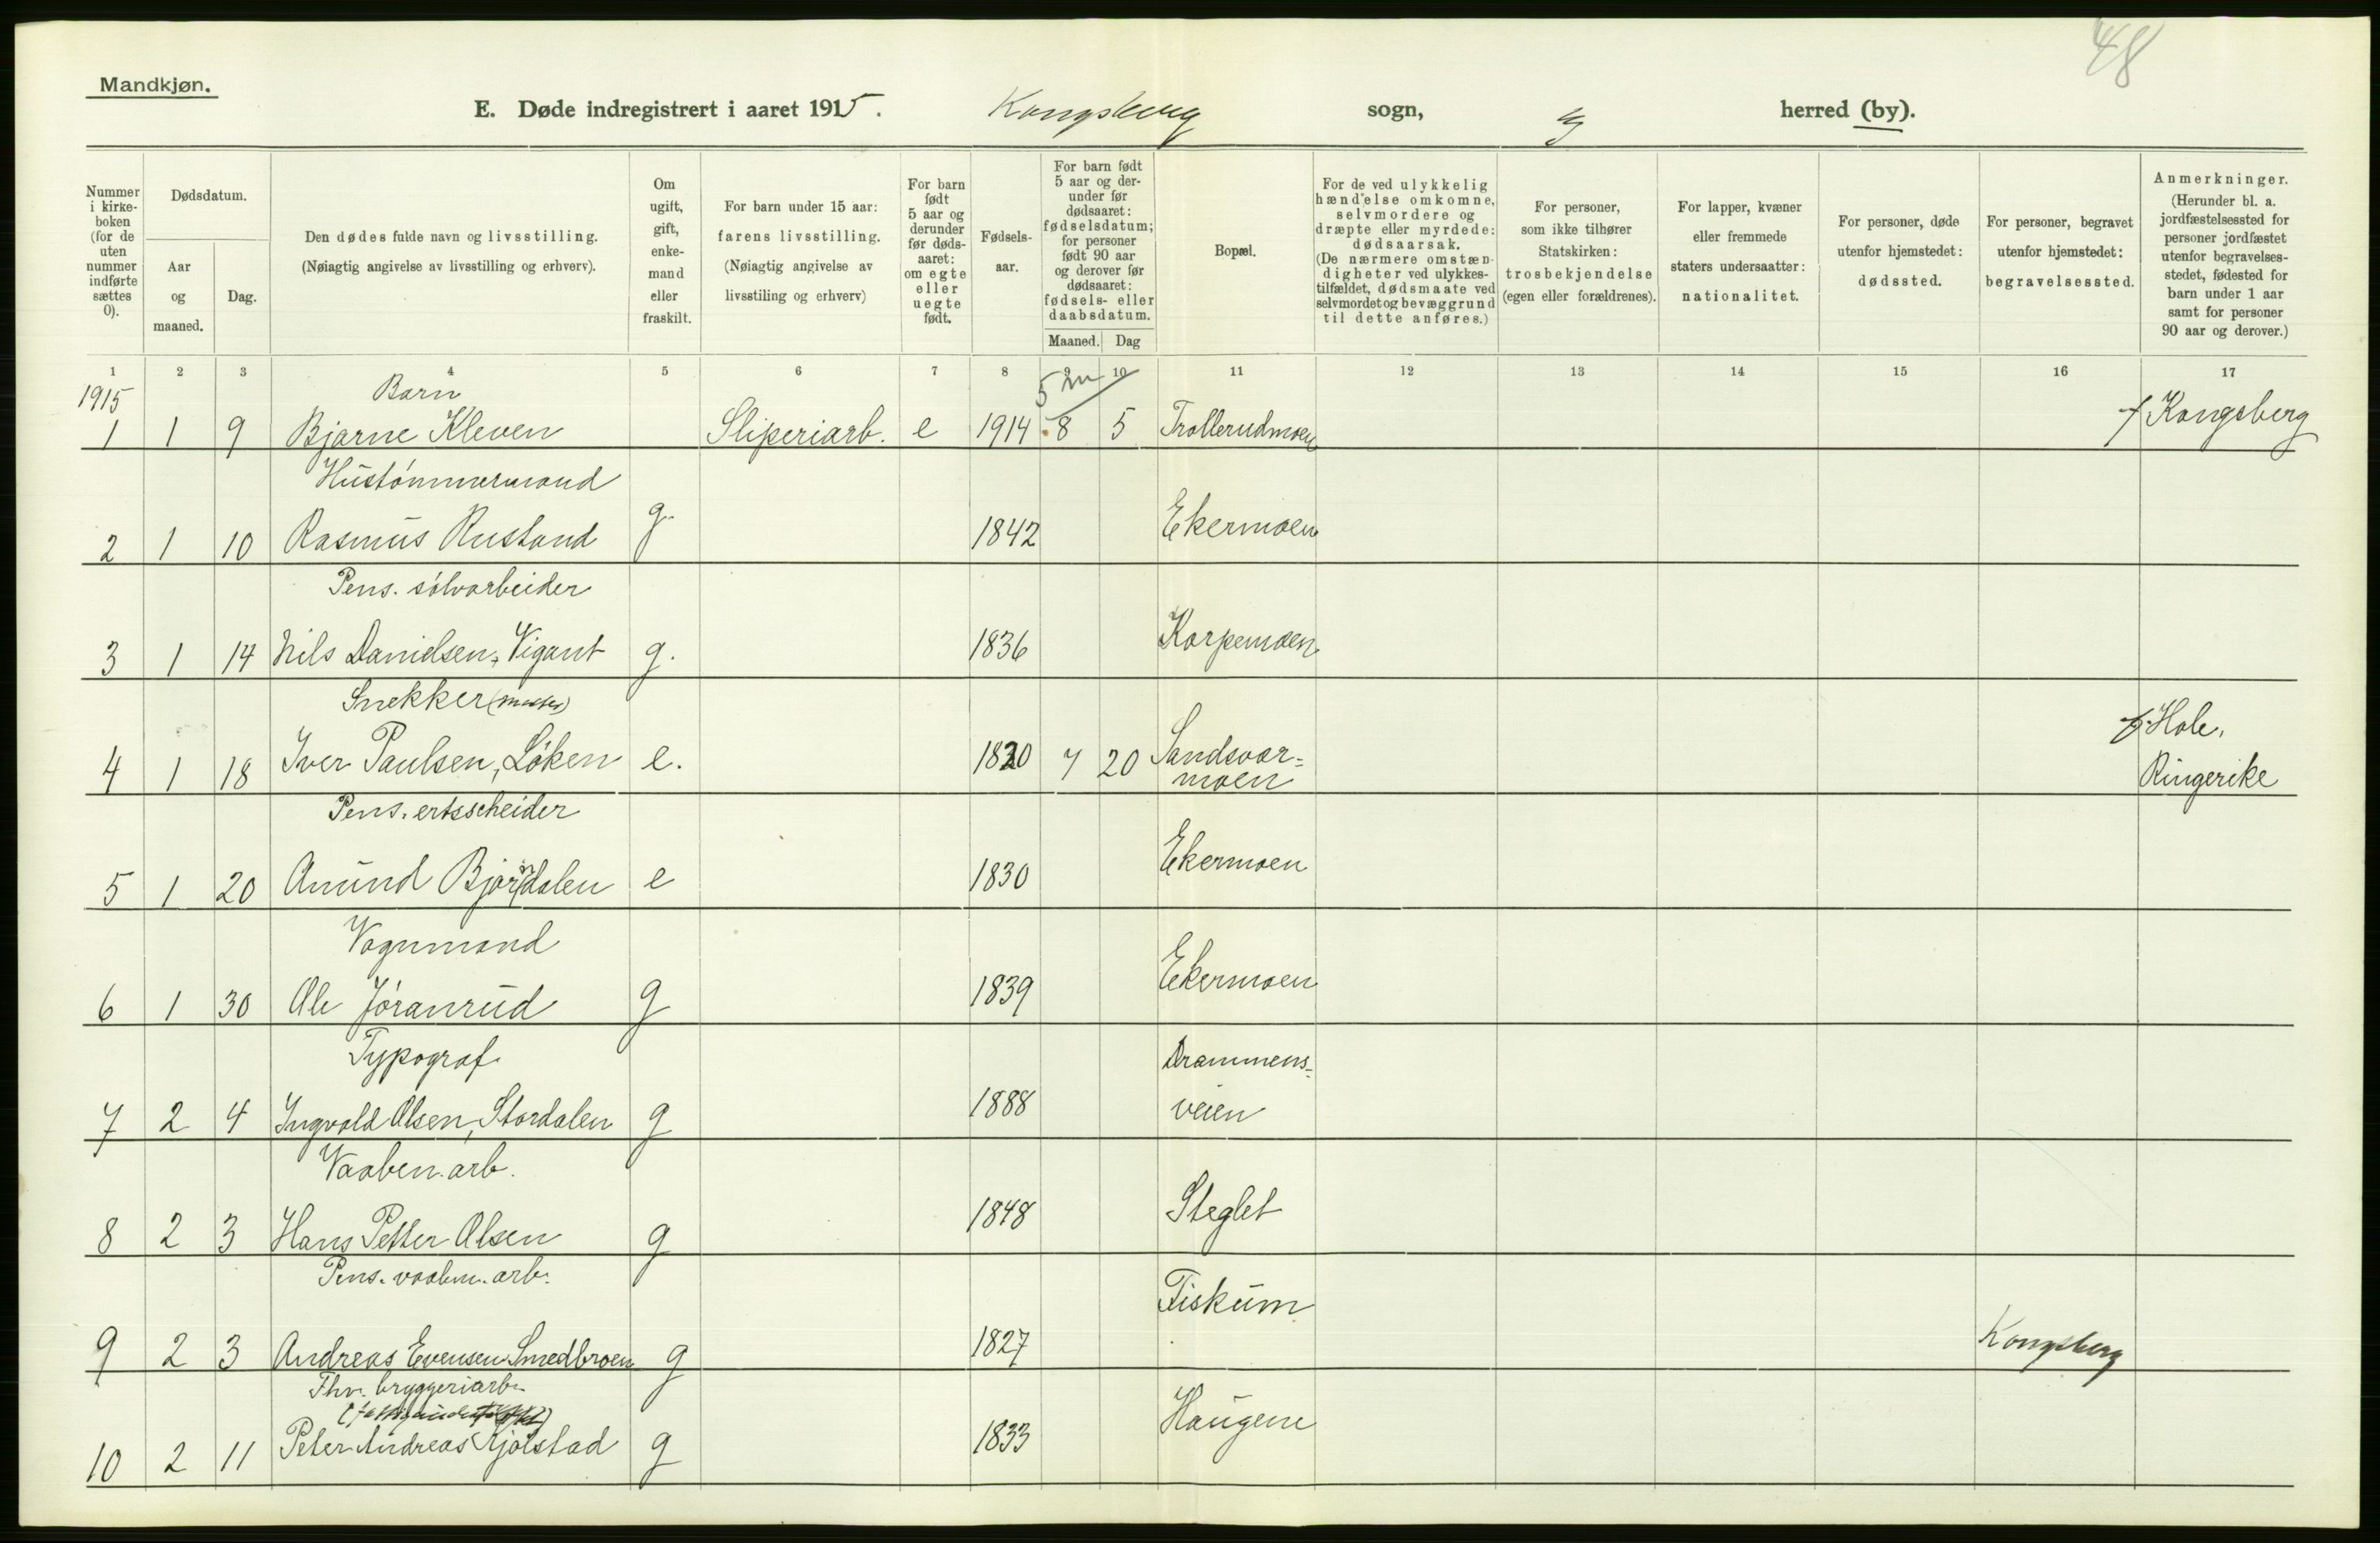 48
Mandkjøn.
E. Døde indregistrert i aaret 1915. Kongsberg sogn, herred (by).
Nummer i kirke-boken (for de uten nummer indførte sættes 0).
Dødsdatum.
Aar og maaned.
Dag.
Den dødes fulde navn og livsstilling.
(Nøiagtig angivelse av livsstilling og erhverv).
Om ugift, gift, enke-mand eller fraskilt.
For barn under 15 aar:
farens livsstilling.
(Nøiagtig angivelse av livsstiling og erhverv)
For barn født 5 aar og derunder før døds-aaret: om egte eller uegte født.
Fødsels-aar.
For barn født 5 aar og der-under før dødsaaret: fødselsdatum; for personer født 90 aar og derover før dødsaaret: fødsels- eller daabsdatum.
Maaned. Dag
Bopæl.
For de ved ulykkelig hændelse omkomne, selvmordere og dræpte eller myrdede: dødsaarsak. (De nærmere omstæn-digheter ved ulykkes-tilfældet, dødsmaate ved selvmordet og bevæggrund til dette anføres.)
For personer, som ikke tilhører Statskirken: trosbekjendelse (egen eller forældrenes).
For lapper, kvæner eller fremmede staters undersaatter: nationalitet.
For personer, døde utenfor hjemstedet: dødssted.
For personer, begravet utenfor hjemstedet: begravelsessted.
Anmerkninger.
(Herunder bl. a. jordfæstelsessted for personer jordfæstet utenfor begravelses-stedet, fødested for barn under 1 aar samt for personer 90 aar og derover.)
1 2 3 4 5 6 7 8 9 10 11 12 13 14 15 16 17
1915 Barn 5 m
1 1 9 Bjarne Kleven Sliperiarb. e 1914 8 5 Trollerudmoen Kongsberg
Hustømmermand
2 1 10 Rasmus Rustand g. 1842 Ekermoen
Pens. sølvarbeider
3 1 14 Nils Danielsen, Vigant g. 1836 Korpemoen
Snekker
4 1 18 Iver Paulsen, Løken e. 1820 7 20 Sandsvær=
moen
Hole,
Ringerike
Pens. ertsscheider
5 1 20 Anund Bjørndalen e 1830 Ekermoen
Vognmand
6 1 30 Ole Jøranrud g 1839 Ekermoen
Typograf
7 2 4 Ingvald Olsen, Stordalen g 1888 Drammens=
veien
Vaaben.arb.
8 2 3 Hans Petter Olsen g 1848 Steglet
Pens. vaaben. arb.
9 2 3 Andreas Evensen Smedbroen g 1827 Fiskum Kongsberg
Fhv. bryggeriarb.
10 2 11 Peter Andreas Kjølstad g 1833 Haugene